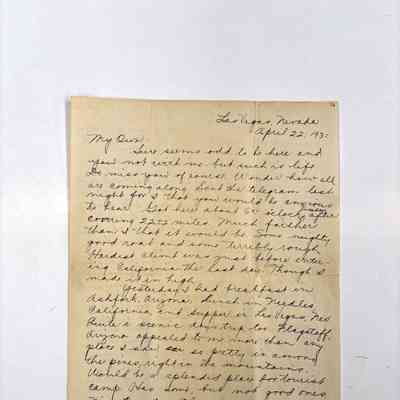 Las Vegas, Nevada
April 22, 193
My Own:
Sure seems odd to be here and
you not with us but such is life
Do miss you of course. Wonder how all
are coming along. Sent the telegram last
night for I that you would be anxious
to hear. Got here about 6 o'clock, after
covering 2272 miles. Much farther
than I that it would be. Some mighty
good road and some terribly rough.
Hardest climb was just before enter-
ing California the last day. Though I
made it in high.
Yesterday I had breakfast in
Ashfork, Arizona, lunch in Needles,
California, and supper in Las Vegas, Nev.
Quite a scenic days trip too. Flagstaff,
Arizona appealed to me more than any
place I saw so pretty in among
the pines, right in the mountains.
Would be a splendid place for tourist
camp. Has some, but not good ones